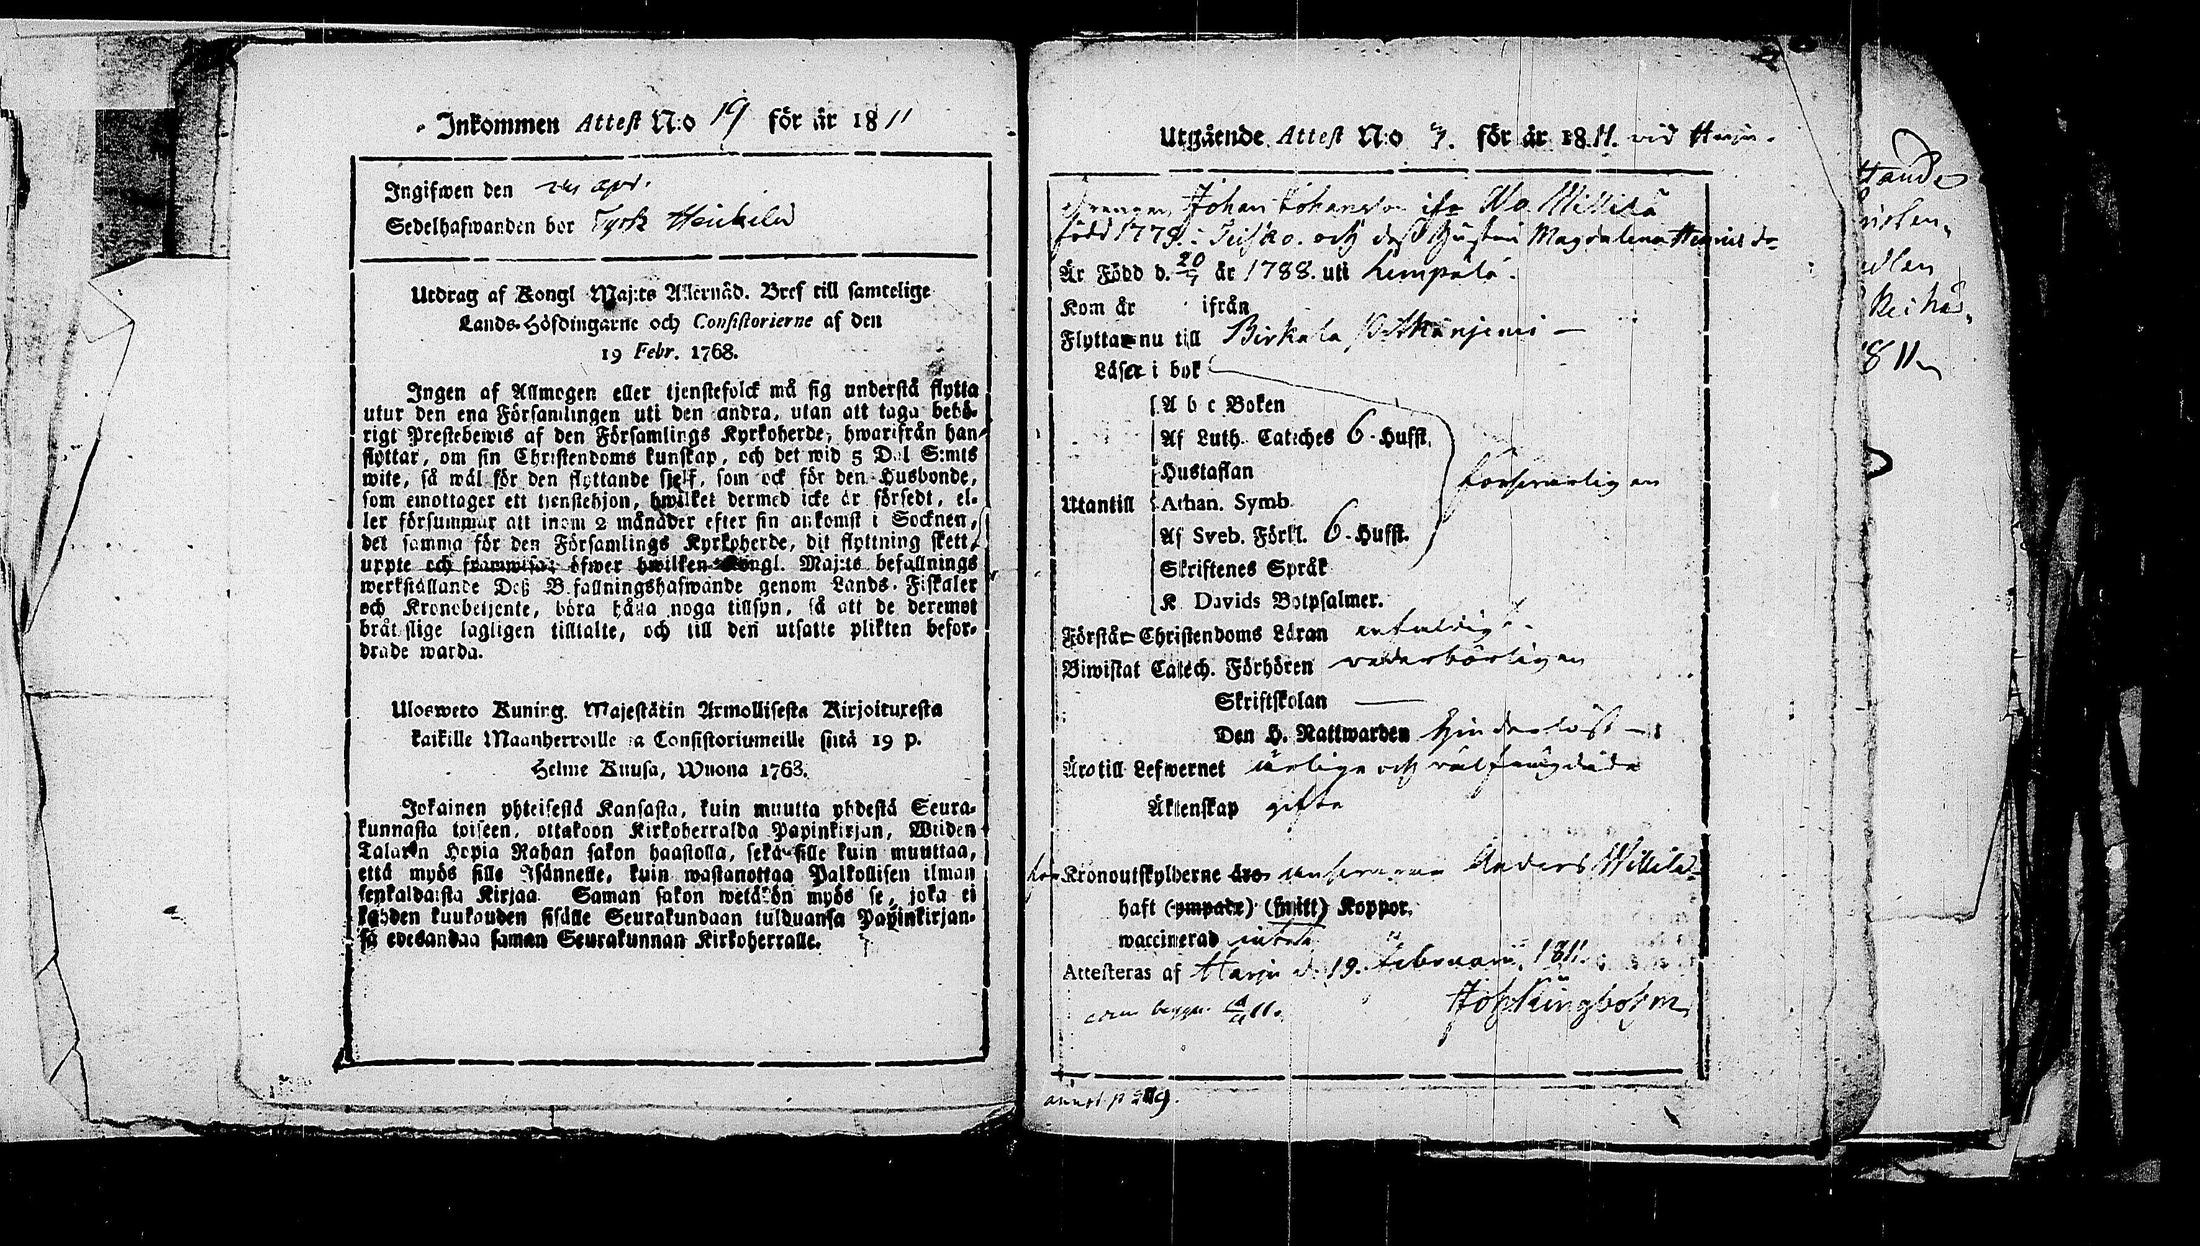 Inkommen Attest N:o 19 för år 1811
Ingifwen den apr.
Sedelhafwanden bor Tyrk Heikilä
Utdrag af Kongl Maj:ts Allernåd. Bref till samtelige
Lands-Höfdingarne och Consistorierne af den
19 Febr. 1768.
Ingen af Allmogen eller tjenstefolck må sig understå flytta
utur den ena Församlingen uti den andra, utan att taga behö-
rigt Prestebewis af den Församlings Kyrkoherde, hwarifrån han
flyttar, om sin Christendoms kunskap, och det wid 5 Dal S:mts
wite, så wäl för den flyttande sjelf, som ock för den Husbonde,
som emottager ett tjenstehjon, hwilket dermed icke är försedt, el-
ler försummar att inom 2 månader efter sin ankomst i Socknen,
det samma för den Församlings Kyrkoherde, dit flyttning skett,
uppte och framwisa; öfwer hwilken Kongl. Maj:ts befallnings
werkställande Deß Befallningshafwande genom Lands-Fiskaler
och Kronobetjente, böra hålla noga tillsyn, så att de deremot
bråtslige lagligen tilltalte, och till den utsatte plikten befor-
drade warda.
Ulosweto Kuning. Majestätin Armollisesta Kirjoituxesta
kaikille Maanherroille ja Consistoriumeille siitä 19 p.
Helme Kuusa, Wuona 1763.
Jokainen yhteisestä Kansasta, kuin muutta yhdestä Seura-
kunnasta toiseen, ottakoon Kirkoherralda Papinkirjan, Wiiden
Talarin Hopia Rahan sakon haastolla, sekä sille kuin muuttaa,
että myös sille Isännelle, kuin wastanottaa Palkollisen ilman
senkaldaista Kirjaa Saman sakon wetäkön myös se, joka ei
kahden kuukauden sisälle Seurakundaan tulduansa Papinkirjan-
sa edesandaa saman Seurakunnan Kirkoherralle.
Utgående Attest N:o 3. för år 1811. vid Harju.
Drengen Johan Johansson ifr. Willilä
född 1779. och deß Hustru Magdalena Henricsdr
Är Född d. 20/7 år 1788. uti Lempälä.
Kom år ifrån
Flyttar nu till Birkala Pitkäniemi
Läser i bok
A b c Boken
Af Luth. Cateches 6. Hufst.
Hustaflan
försvarligen
Utantill Athan. Symb.
Af Sveb. Förkl. 6. Hufst.
Skriftenes Språk
K Davids Botpsalmer.
Förstår Christendoms Läran enfaldigt
Biwistat Catech. Förhören vederbörligen
Skriftskolan
Den H. Nattwarden hinderlöst
Äro till Lefwernet ärlige och välfrägdade
Äktenskap gifte
för Kronoutskylderne äro ansvarar Anders Willilä
haft (ympade) (smitt) Koppor.
waccinerad
Attesteras af Harju d. 19. Februarii 1811.
Joh Kingbohm
annot. p